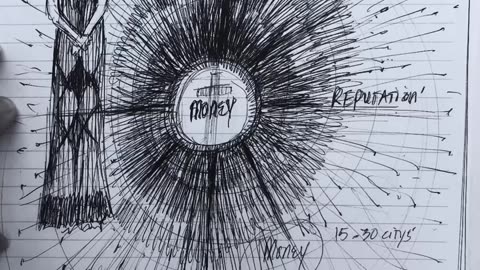 MONEY
REPUTATION'
15-30 CITYS'
MONEY